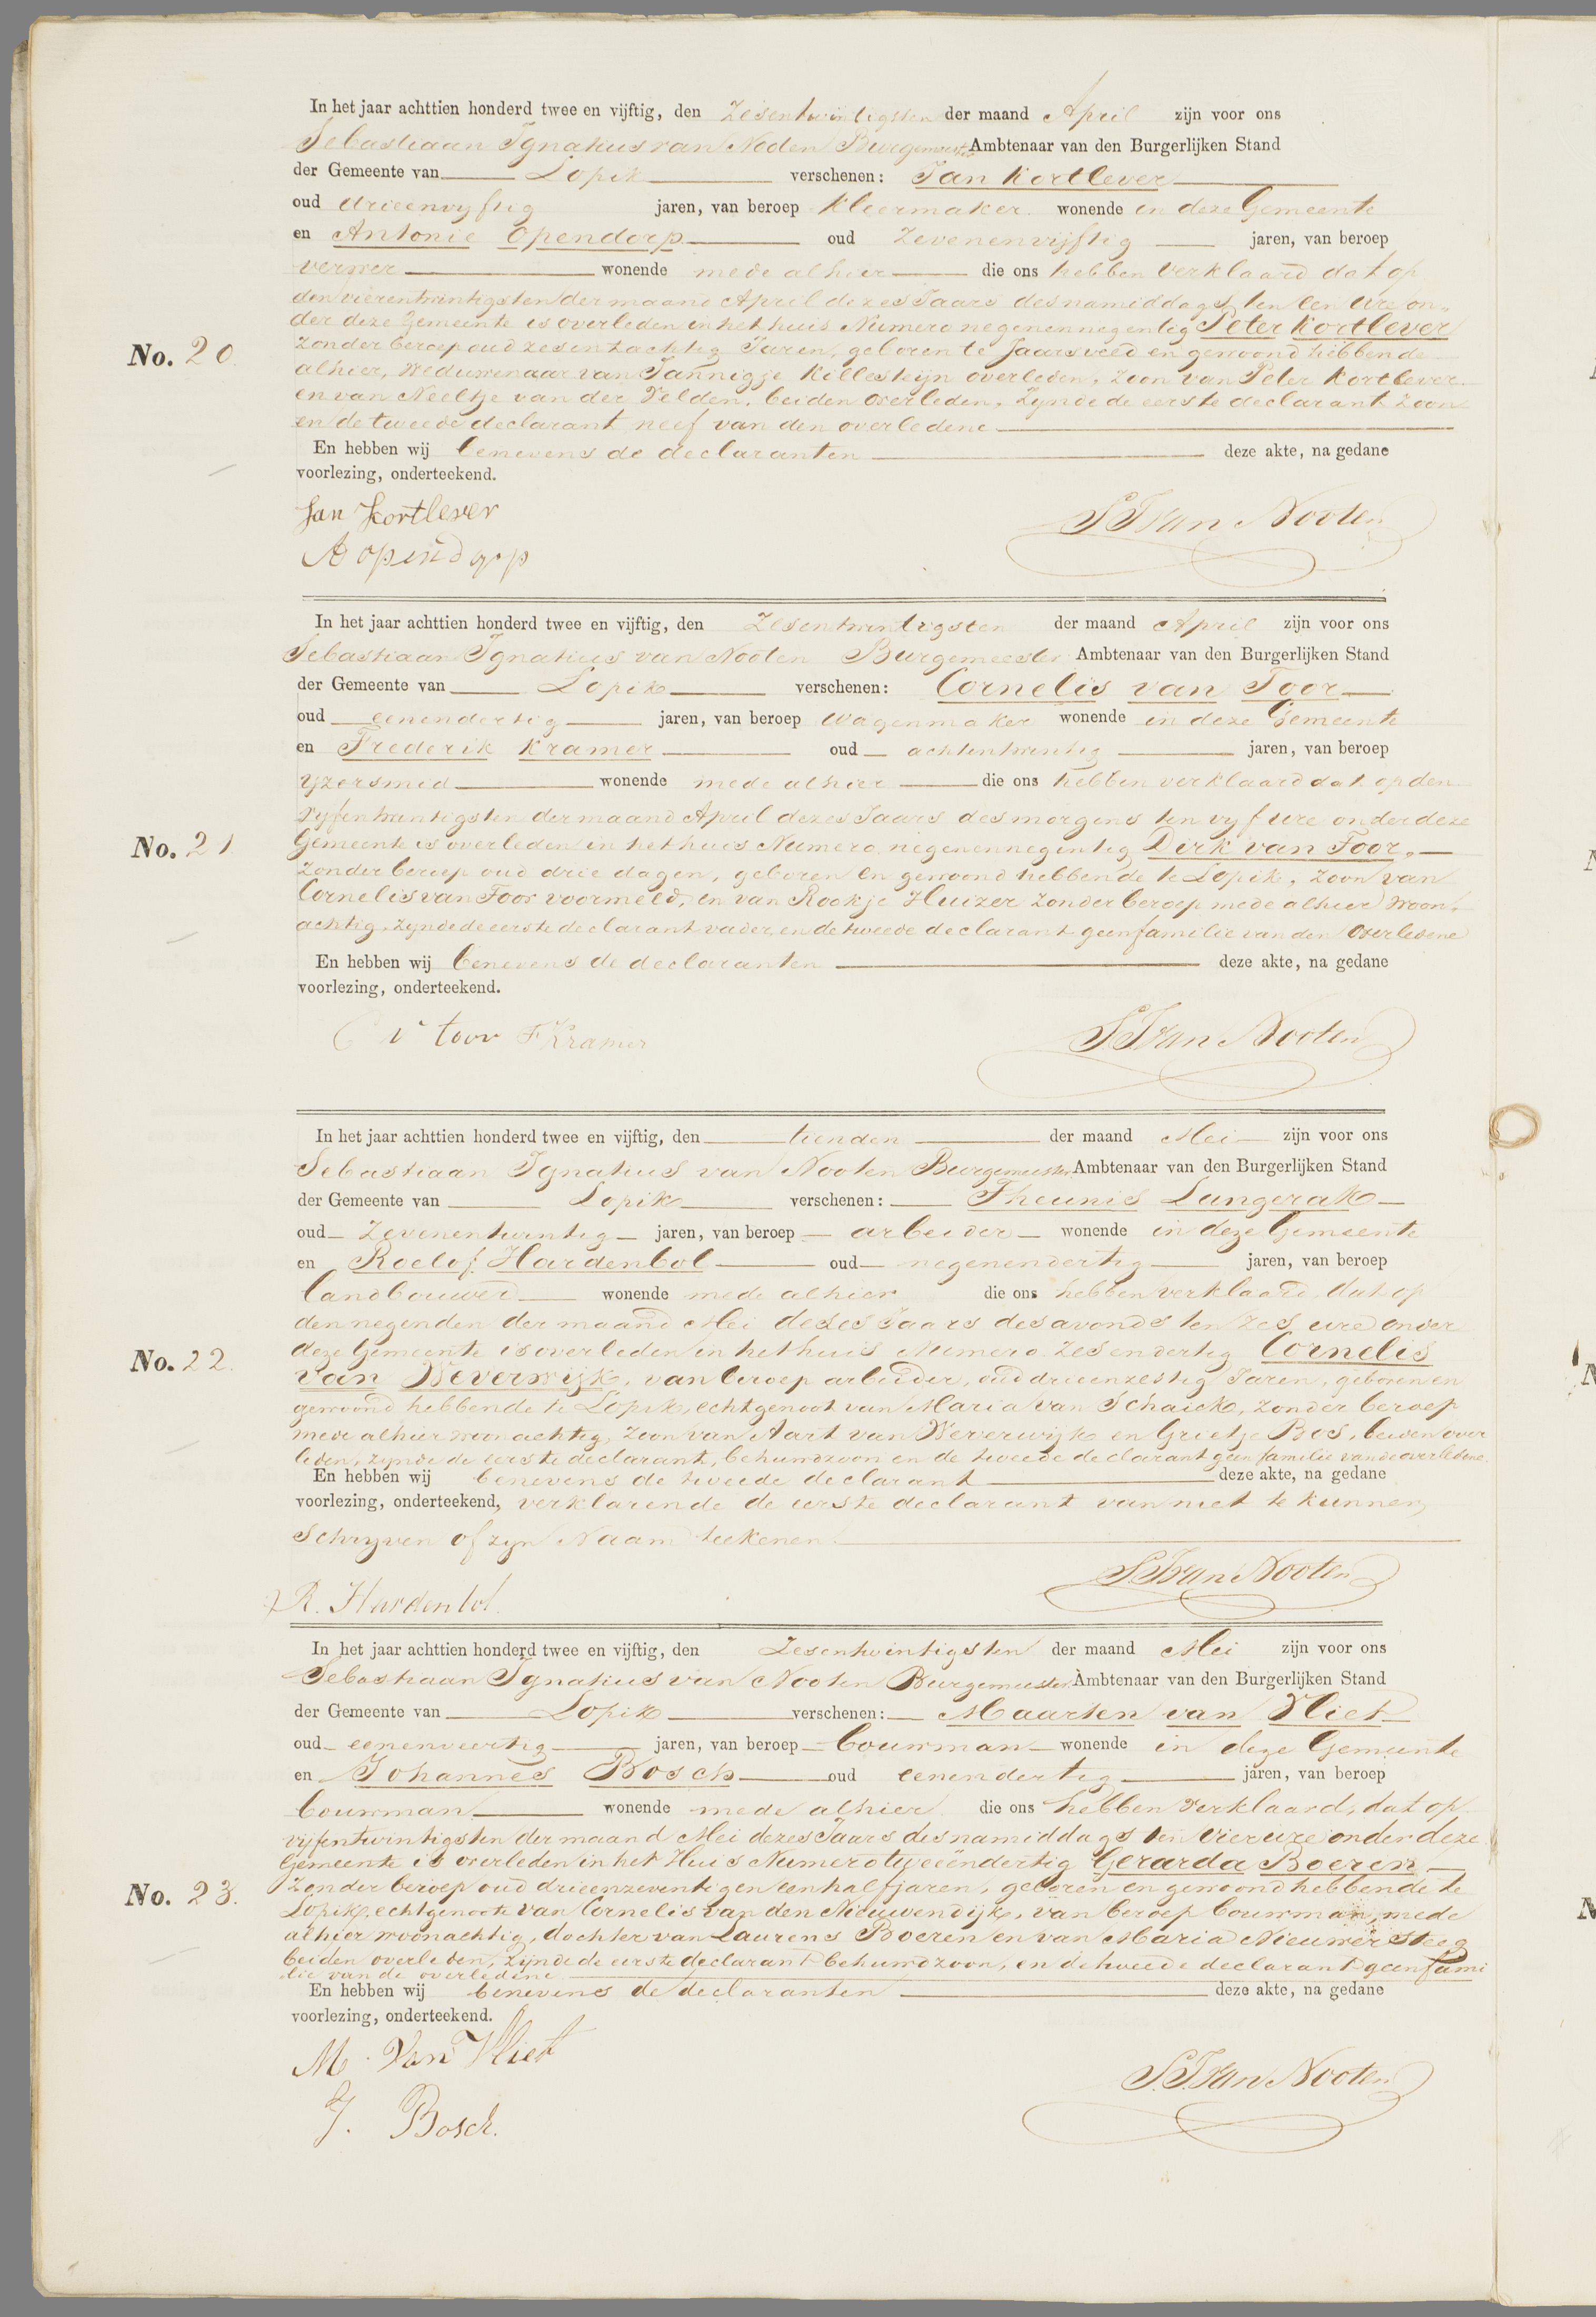 In het jaar achttien honderd twee en vijftig, den Zesentwintigsten der maand April zijn voor ons
Sebastiaan Ignatius van Nooten Burgemeester Ambtenaar van den Burgerlijken Stand
der Gemeente van Lopik verschenen: Jan Kortlever
oud drieenvyftig jaren, van beroep kleermaker wonende in deze Gemeente
en Antonie Opendorp oud Zevenenvijftig jaren, van beroep
verwer wonende mede alhier die ons hebben verklaard dat op
den vierentwintigsten der maand April dezes Jaars des namiddags ten een ure on-
No. 20. der deze Gemeente is overleden in het huis Numero negenennegentig Peter Kortlever
zonder beroep oud zesentachtig Jaren, geboren te Jaarsveld en gewoond hebbende
alhier, Weduwenaar van Jannigje Killesteijn overleden, zoon van Peter Kortlever
en van Neeltje van der Velden, beiden overleden, zynde de eerste declarant zoon
en de tweede declarant neef van den overledene
En hebben wij benevens de declaranten deze akte, na gedane
voorlezing, onderteekend.
Jan Kortlever S I van Nooten
A opendorp
In het jaar achttien honderd twee en vijftig, den Zesentwintigsten der maand April zijn voor ons
Sebastiaan Ignatius van Nooten Burgemeester Ambtenaar van den Burgerlijken Stand
der Gemeente van Lopik verschenen: Cornelis van Toor
oud eenendertig jaren, van beroep Wagenmaker wonende in deze Gemeente
en Frederik Kramer oud achtentwintig jaren, van beroep
yzersmid wonende mede alhier die ons hebben verklaard dat op den
vyfentwintigsten der maand April dezes Jaars des morgens ten vyf ure onder deze
No. 21 Gemeente is overleden in het huis Numero negenennegentig Dirk van Toor,
zonder beroep oud drie dagen, geboren en gewoond hebbende te Lopik, zoon van
Cornelis van Toor voormeld, en van Rookje Huizer zonder beroep mede alhier woon-
achtig, zynde de eerste declarant vader, en de tweede declarant geen familie van den overledene
En hebben wij benevens de declaranten deze akte, na gedane
voorlezing, onderteekend.
C v toor F Kramer S I van Nooten
In het jaar achttien honderd twee en vijftig, den tienden der maand Mei zijn voor ons
Sebastiaan Ignatius van Nooten Burgemeester Ambtenaar van den Burgerlijken Stand
der Gemeente van Lopik verschenen: Theunis Langerak
oud Zevenentwintig jaren, van beroep arbeider wonende in deze Gemeente
en Roelof Hardenbol oud negenendertig jaren, van beroep
landbouwer wonende mede alhier die ons hebben verklaard, dat op
den negenden der maand Mei dezes Jaars des avonds ten zes ure onder
No. 22. deze Gemeente is overleden in het huis Numero Zesendertig Cornelis
van Weverwijk, van beroep arbeider, oud drieenzestig Jaren, geboren en
gewoond hebbende te Lopik, echtgenoot van Maria van Schaick, zonder beroep
mede alhier woonachtig, zoon van Aart van Weverwijk en Grietje Bos, beiden over
leden, zynde de eerste declarant, behuwdzoon en de tweede declarant geen familie van de overledene.
En hebben wij benevens de tweede declarant deze akte, na gedane
voorlezing, onderteekend, verklarende de eerste declarant van niet te kunnen
schryven of zyn Naam teekenen.
S. I van Nooten
R. Hardenbol.
In het jaar achttien honderd twee en vijftig, den Zesentwintigsten der maand Mei zijn voor ons
Sebastiaan Ignatius van Nooten Burgemeester Ambtenaar van den Burgerlijken Stand
der Gemeente van Lopik verschenen: Maarten van Vliet
oud eenenveertig jaren, van beroep bouwman wonende in deze Gemeente
en Johannes Bosch oud eenendertig jaren, van beroep
bouwman wonende mede alhier die ons hebben verklaard, dat op
vijfentwintigsten der maand Mei dezes Jaars des namiddags ten vier ure onder deze
Gemeente is overleden in het Huis Numero tweeëndertig Gerarda Boeren
No. 23. Zonder beroep oud drieenzeventig en een half jaren, geboren en gewoond hebbende te
Lopik, echtgenoote van Cornelis van den Nieuwendijk, van beroep bouwman, mede
alhier woonachtig, dochter van Laurens Boeren en van Maria Nieuwersteeg
beiden overleden, zynde de eerste declarant behuwdzoon, en de tweede declarant geen fami
lie van de overledene
En hebben wij benevens de declaranten deze akte, na gedane
voorlezing, onderteekend.
M. van Vliet S. I. van Nooten
J. Bosch.